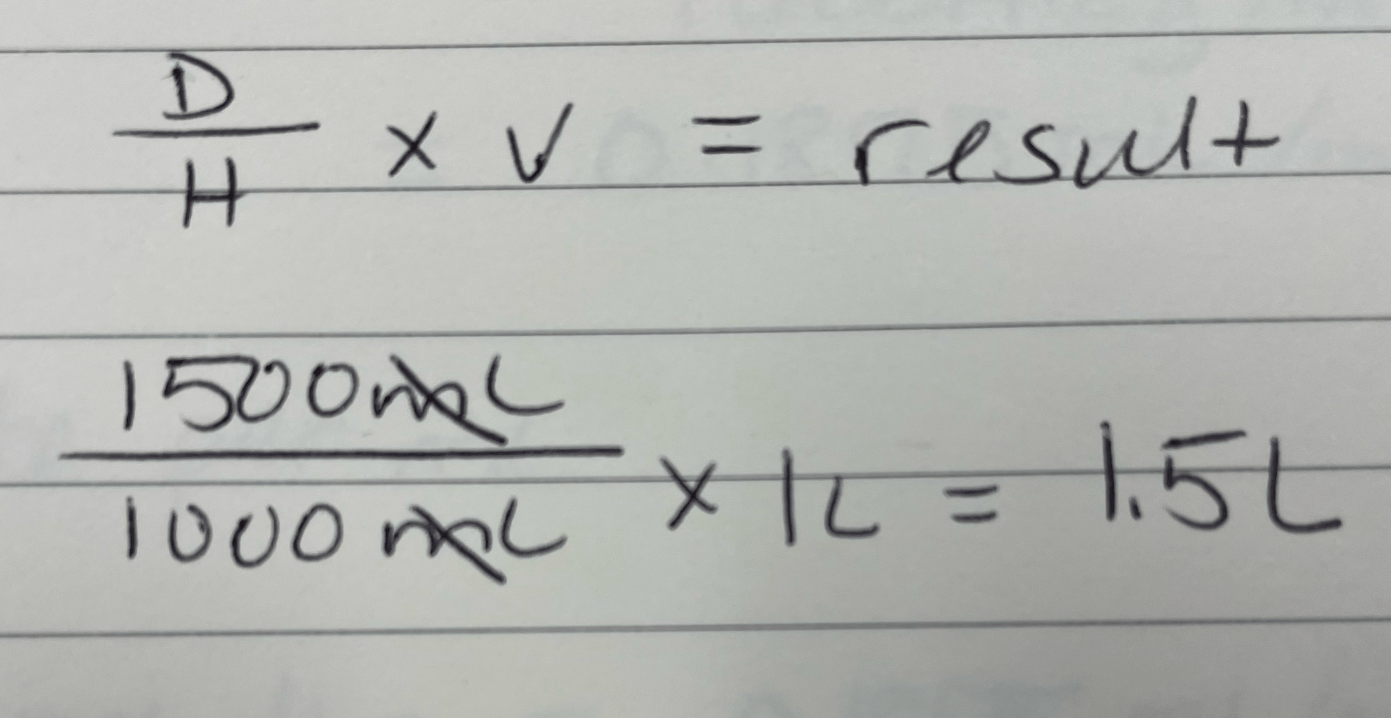 D
H × V = result
1500mL
1000mL × 1L = 1.5L